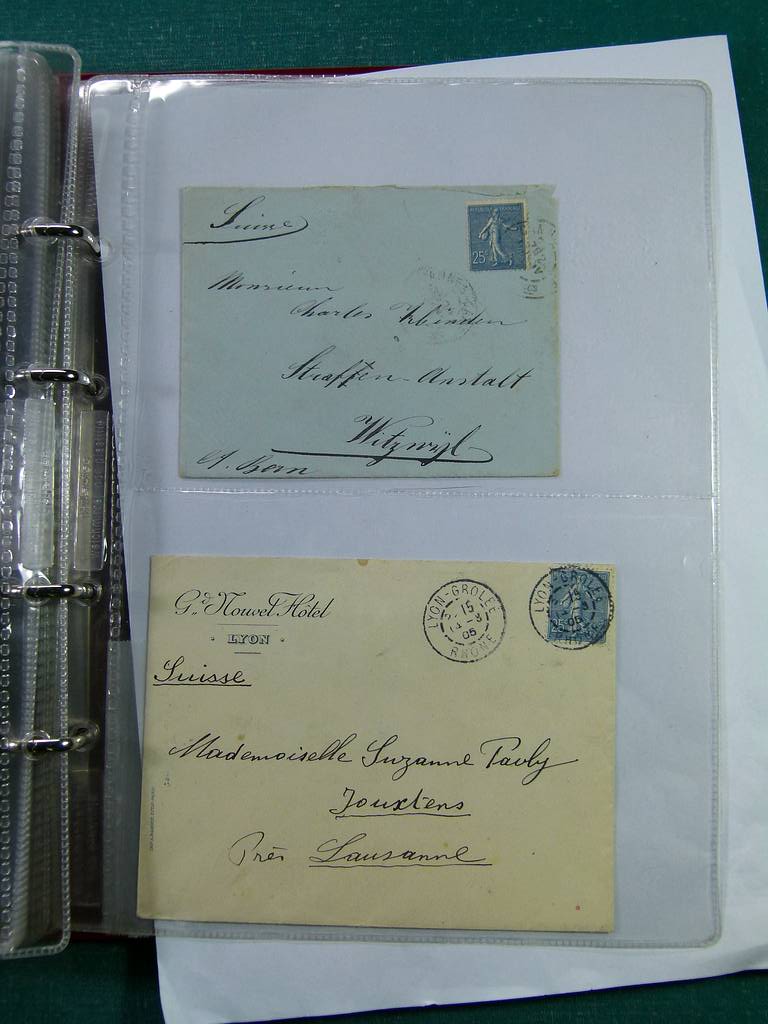 Suisse
REPUBLIQUE FRANCAISE
25
Monsieur
Charles Zbinden
Straffen-Anstalt
Witzwyl
Ct. Bern
Gd. Nouvel Hôtel
• LYON •
LYON-GROLEE
15
12-3
05
RHONE
LYON-GROLEE
05
RHONE
Suisse
Mademoiselle Suzanne Pauly
Jouxtens
Près Lausanne